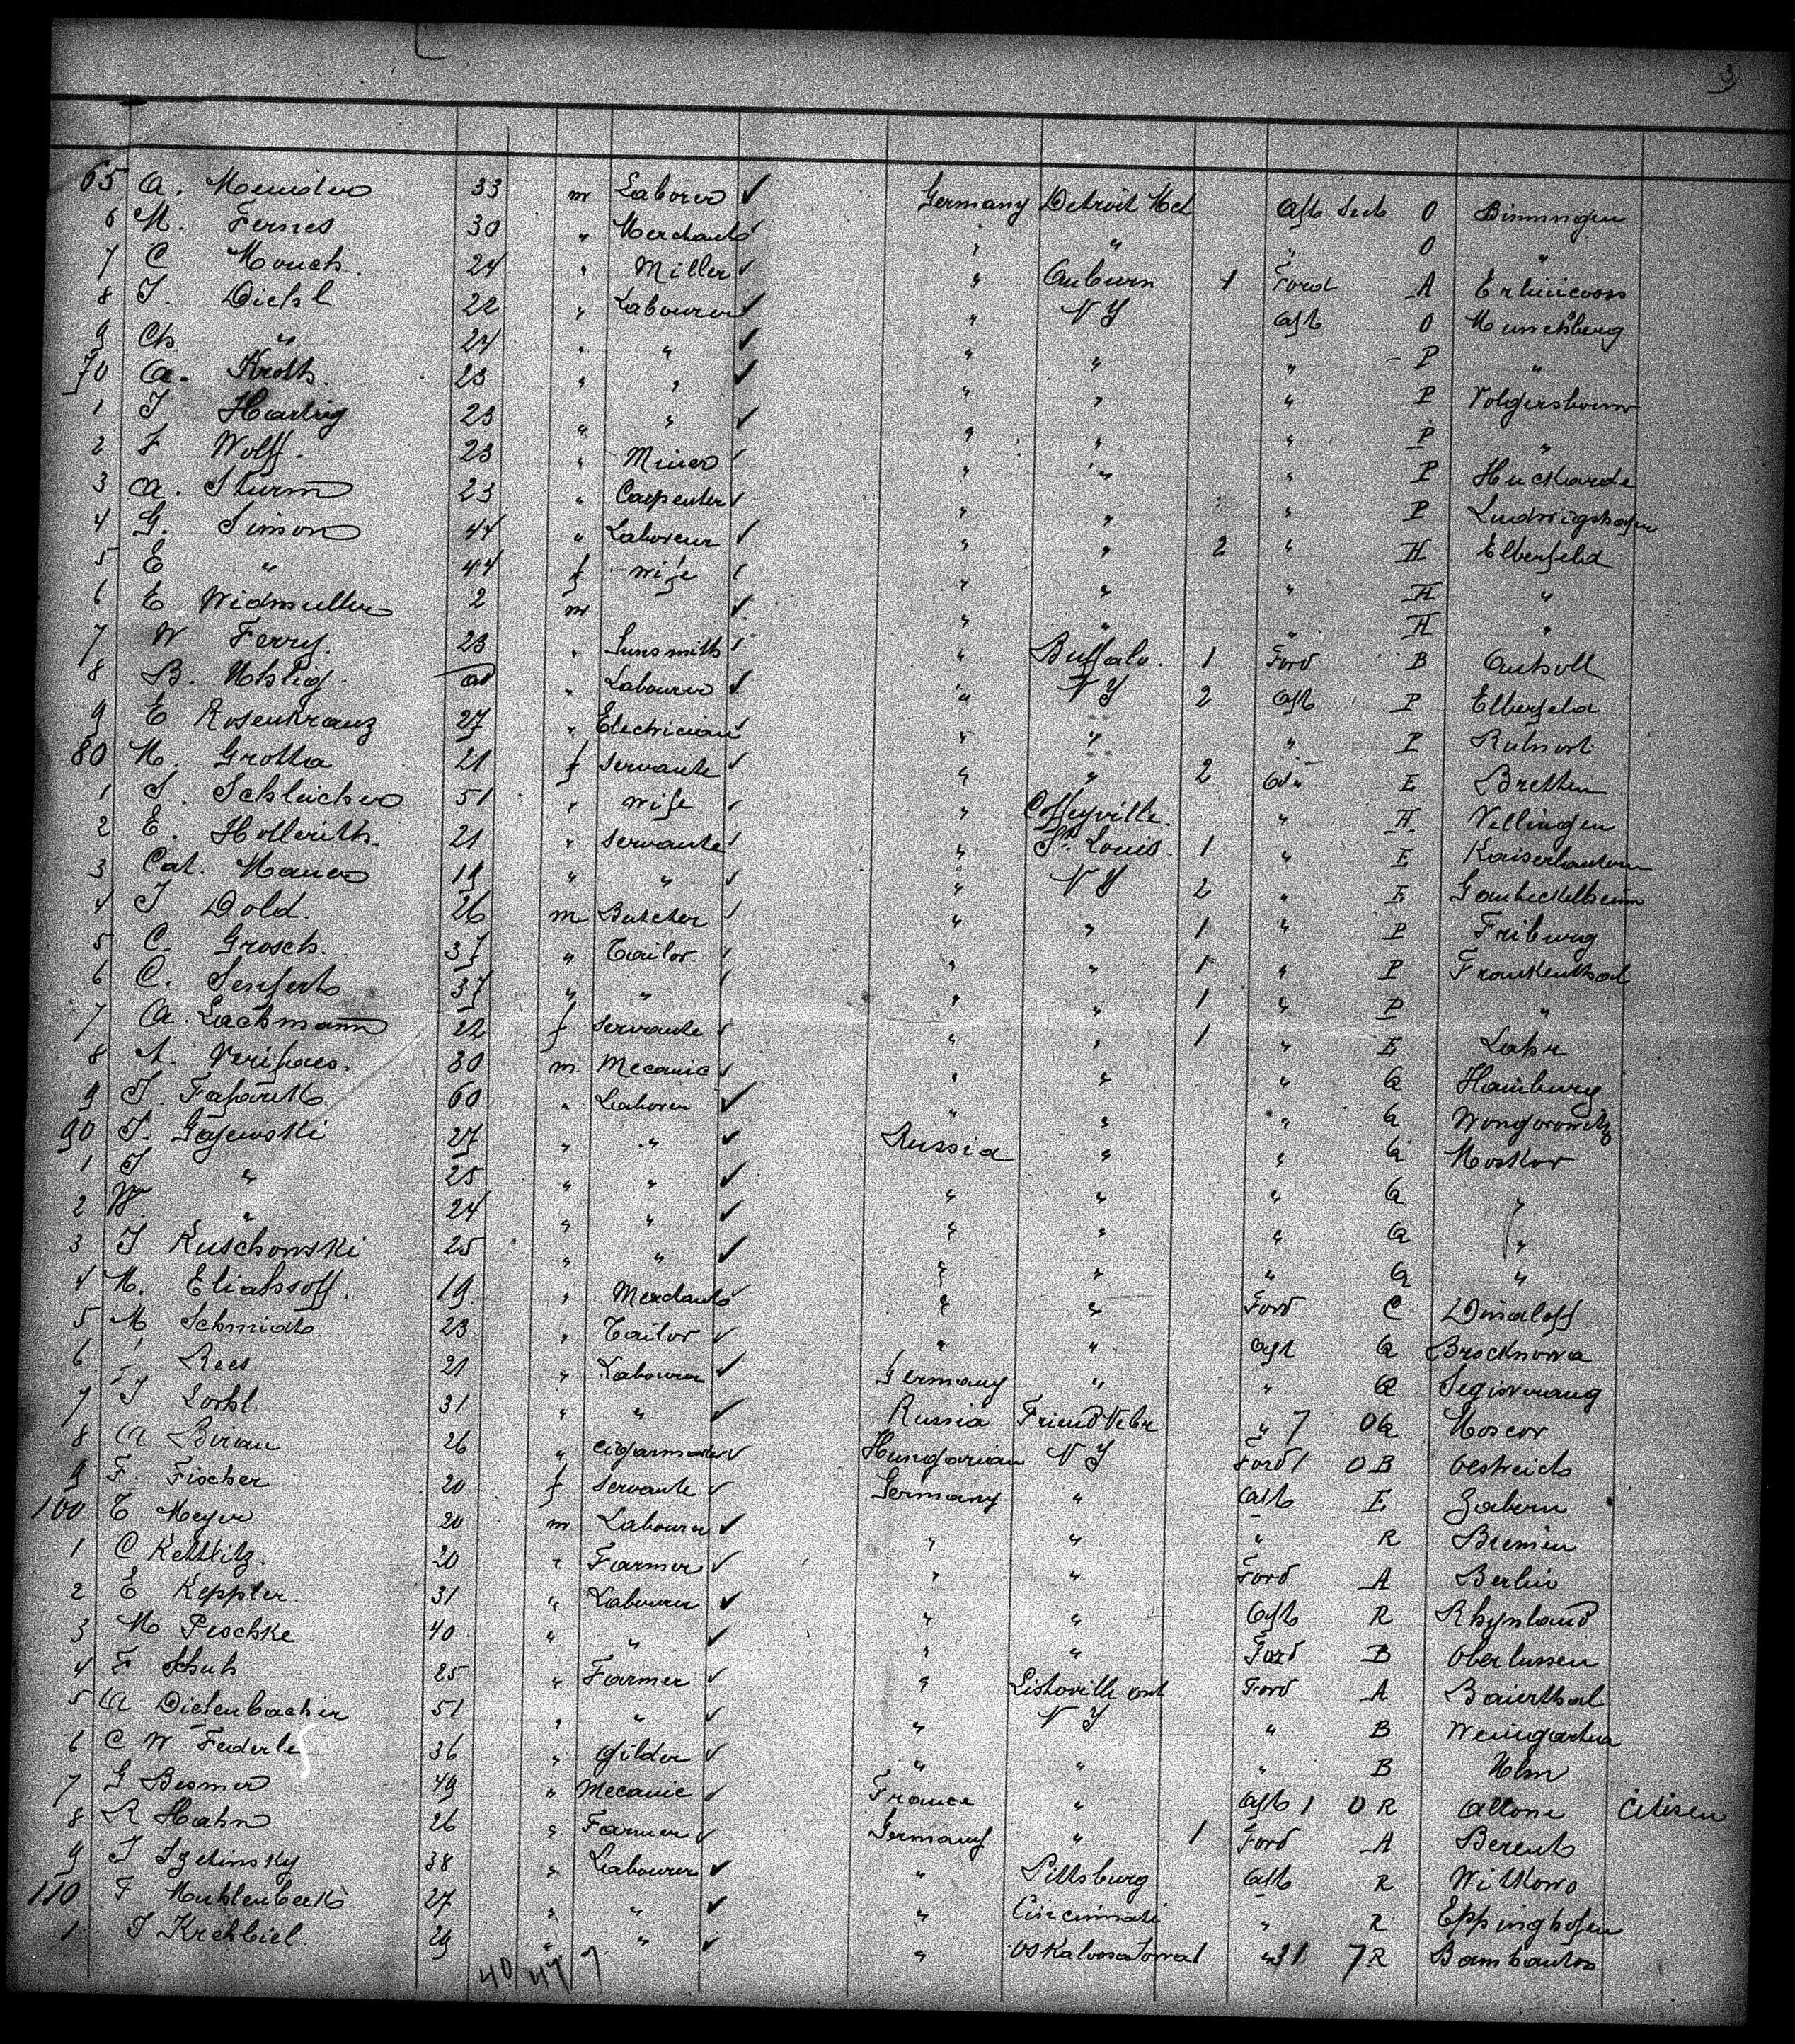 3
65 A. 33 m Laborer ✓ Germany Detroit Mch Aft Deck O Binningen
6 M. Fernes 30 " Merchant ✓ " " " O "
7 C Mouch. 24 " Miller ✓ " Auburn 1 Ford A
8 J. Diehl 22 " Labourer ✓ " N Y Aft O Munchberg
9 Ch " 24 " " ✓ " " " P "
70 A. Kroth. 23 " " ✓ " " " P
1 J Hartig 23 " " ✓ " " " P "
2 F Wolff. 23 " Miner ✓ " " " P Huckarde
3 A. Sturm 23 " Carpenter ✓ " " " P Ludwigshafen
4 G. Simon 44 " Laboreur ✓ " " 2 " H Elberfeld
5 E " 44 f wife ✓ " " " H "
6 E Widmuller 2 m ✓ " " " H "
7 W Ferry. 23 " ✓ " Buffalo. 1 Ford B
8 B. Uhlig. " Labourer ✓ " N Y 2 Aft P Elberfeld
9 E Rosenkranz 27 " Electrician ✓ " " " P Ruhrort
80 M. Grotha 21 f Servante ✓ " " 2 " E Bretten
1 S. Schleicher 51 " wife ✓ " Coffeyville. " H Vellingen
2 E. Hollerith. 21 " Servante ✓ " St. Louis. 1 " E Kaiserlautern
3 Cat. Mauer 19 " " ✓ " N Y 2 " E Gaubickelheim
4 J Dold. 26 m Butcher ✓ " " 1 " P Friburg
5 C. Grosch. 37 " Tailor ✓ " " 1 " P Frankenthal
6 C. Senfert 37 " " ✓ " " 1 " P "
7 A. Lachmann 22 f Servante ✓ " " 1 " E Lahr
8 A. 30 m. Mecanic ✓ " " " Q Hamburg
9 J. 60 " Laborer ✓ " " " Q Wongorowitz
90 J. Gajewski 27 " " ✓ Russia " " Q Moskov
1 J " 25 " " ✓ " " " Q "
2 W. " 24 " " ✓ " " " Q "
3 J Kuschowski 25 " " ✓ " " " Q "
4 M. Eliassoff. 19. " Merchant ✓ " " Ford C Dinaloff
5 M Schmidt. 23. " Tailor ✓ " " Aft Q Brocknowa
6 Rees 21 " Labourer ✓ Germany " " Q
7 J 31 " " ✓ Russia Friend Nebr " 7 OQ Moscov
8 A Birau 26 " cigarmaker ✓ Hungarian N Y Ford 1 O B Oestreich
9 F. Fischer 20 f Servante ✓ Germany " Aft E Zabern
100 E Meyer 20 m Labourer ✓ " " " R Bremen
1 C Kettlitz. 20 " Farmer ✓ " " Ford A Berlin
2 E Keppler. 31 " Labourer ✓ " " Aft R Rhynland
3 M Peschke 40 " " ✓ " " Ford B Oberlussen
4 F Schuh 25 " Farmer ✓ " Listoville ont Ford A Baierthal
5 A Diefenbacher 51 " " ✓ " N Y " B Weingarten
6 C W Federle 36 " Gilder ✓ " " " B Ulm
7 G Besmer 49 " Mecanic ✓ France " Aft 1 O R Altone Citisen
8 R Hahn 26 " Farmer ✓ Germany " 1 Ford A Berent
9 J Szelinsky 38 " Labourer ✓ " Pittsburg Aft R Witkowo
110 F Muhlenbeck 27 " " ✓ " Cincinnati " R Eppinghofen
1 J Krehbiel 29 " " ✓ " Oskaloosa Iowa 1 " 31 7 R
40/47/7